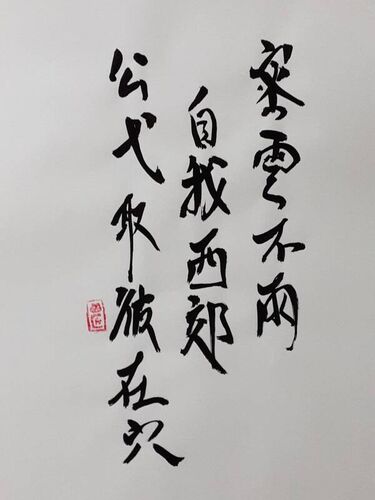 密雲不雨
自我西郊
公弋取彼在穴